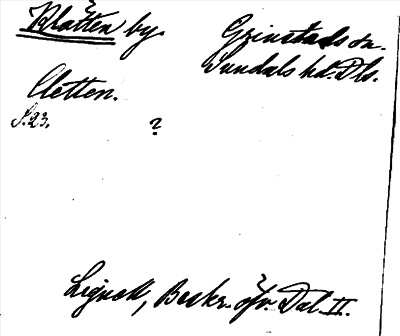 Klätten by
Grinstads sn.
Sundals hd. Dls.
Cletten.
S. 23. ?
Lignell, Beskr. öfv. Dal. II.